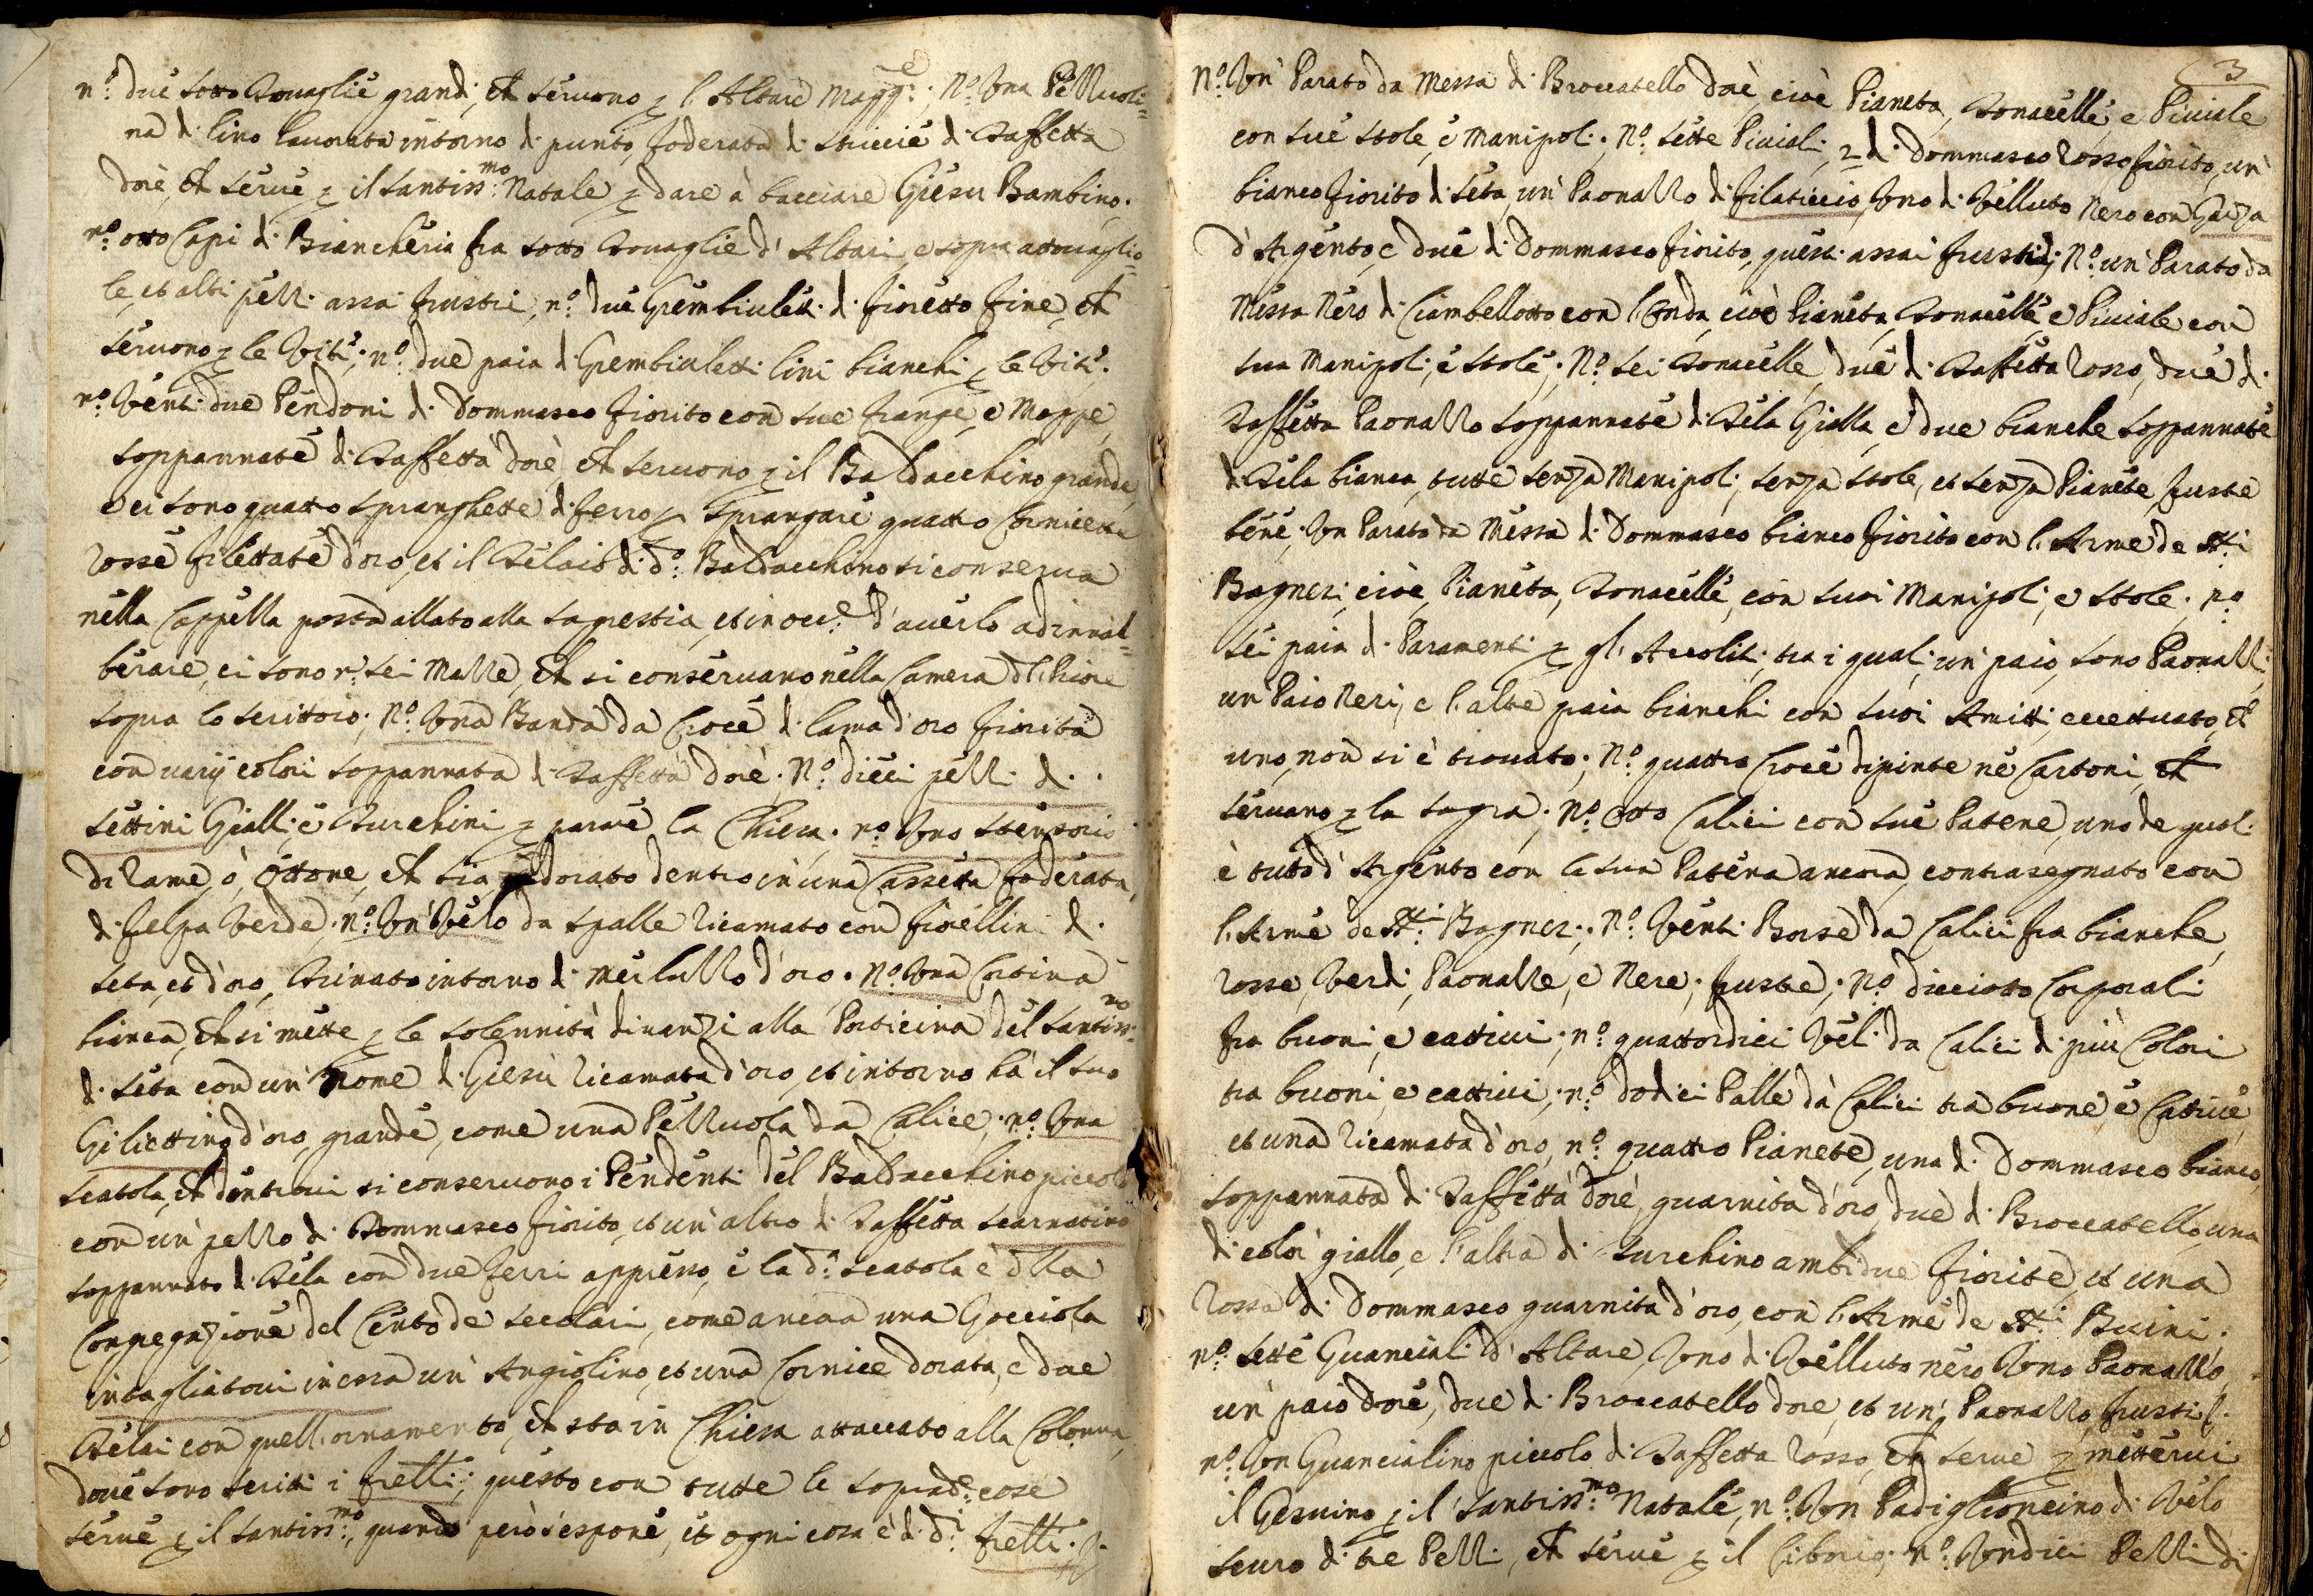 n.º due sotto Tovaglie grandi, ch̃ servono p l'Altare Magg:re; Nº. Una Pezzuoli=
na di lino lavorata intorno di punto, foderata di striccie di Taffettà
dorè, ch̃ serve p il santiss:mo Natale p dare à bacciare Giesu Bambino.
nº. otto Capi di Biancheria fra sotto Tovaglie d'Altari, e sopra attovaglio=
le, et altri pezzi assai frusti, nº. due Grembiulett: di fioretto fine, ch̃
servono p le Vite; nº. due paia di Grembialetti lini bianchi p le Vite.
nº. Venti due Pendoni di Dommasco fiorito con sue frange, e Mappe,
soppannate di Taffettà dorè, ch̃ servono p il Baldacchino grande,
e ci sono quattro spranghette di ferro p sprangare quattro Cornicette
rosse filettate d'oro, et il Telaio di d.º Baldacchino si conserva
nella Cappella posta allato alla sagrestia, et in occ.e d'averlo ad innal=
berare, ci sono n.º sei Mazze, ch̃ si conservano nella Camera dl Priore
sopra lo scrittoio; Nº. Una Banda da Croce di lama d'oro fiorita
con varij colori soppannata di Taffettà dorè. Nº. dieci pezzi di
settini Gialli, e Turchini p parare la Chiesa. nº. Uno stensorio
di rame, ò, ottone, ch̃ sia dorato dentro in una Cassetta foderata,
di felpa verde; nº. Un Velo da spalle ricamato con fiorellini di
seta, et d'oro, Trinato intorno di merluzzo d'oro. Nº. Una Cortina
bianca, ch̃ si mette p le solennità dinanzi alla Porticina del santiss:mo
di seta con un nome di Giesù ricamata d'oro, et intorno hà il suo
Gigliettino d'oro, grande, come una Pezzuola da Calice; nº. Una
scatola, ch̃ dentrovi si conservono i Pendenti del Baldacchino piccolo
con un pezzo di Dommasco fiorito, et un altro di Taffettà scarnatino
soppannato di Tela con due ferri appresso, e la d.ª scatola è dlla
Congregazione del Cento de secolari, come ancora una Gocciola
intagliatovi in essa un Angiolino, et una Cornice dorata, e due
Telai con quell'ornamento, ch̃ sta in Chiesa attaccato alla Colonna,
dove sono scritti i frelli; questo con tutte le soprad:e cose
serve p il santiss:mo, quando però s'espone, et ogni cosa è di d.i frelli.
3
Nº. Un Parato da Messa di Broccatello dorè, cioè Pianeta, Tonacelle, e Piviale
con sue stole, e Manipoli. Nº. sette Piviali, 2 di Dommasco rosso fiorito, un
bianco fiorito di seta, un Paonazzo di filaticcio, Uno di Velluto nero con Garza
d'Argento, e due di Dommasco fiorito, questi assai frusti; Nº. un Parato da
Messa Nero di Ciambellotto con l'onda, cioè Pianeta, Tonacelle, e Piviale con
sua Manipoli, e stole; Nº. sei Tonacelle, due di Taffettà rosso, due di
Taffettà Paonazzo soppannate di Tela Gialla, e due bianche soppannate
di Tela bianca, tutte senza Manipoli, senza stole, et senza Pianete, fruste
bene; Un Parato da Messa di Dommasco bianco fiorito con l'Arme de SS:ri
Bagnesi, cioè, Pianeta, Tonacelle, con suoi Manipoli, e stole. nº
sei paia di Paramenti p gl'Accoliti, tra i quali, un paio, sono Paonazzi,
un Paio Neri, e l'altre paia bianchi con suoi Amitti, eccettuato, ch̃
uno, non si è trovato; Nº. quattro Croce dipinte ne Cartoni, ch̃
servano p la sagra. Nº. Otto Calici con sue Patene, uno de quali
è tutto d'Argento con la sua Patena ancora, contrasegnato con
l'Arme de SS:ri Bagnesi; Nº. Venti Borse da Calici fra bianche,
rosse, Verdi, Paonazze, e Nere, fruste; Nº. diciotto Corporali
fra buoni, e cattivi; nº. quattordici Veli da Calici di più Colori
tra buoni, e cattivi; nº. dodici Palle da Calici tra buone, e Cattive,
et una ricamata d'oro, nº. quattro Pianete, una di Dommasco bianco
soppannata di Taffettà dorè, guarnita d'oro, due di Broccatello, una
di color giallo, e l'altra di Turchino ambidue fiorite, et una
rossa di Dommasco guarnita d'oro, con l'Arme de SS:ri Buini.
nº. sette Guanciali d'Altare, Uno di Velluto nero, Uno Paonazzo,
un paio dorè, due di Broccatello dorè, et un Paonazzo, frusti.
nº. Un Guancialino piccolo di Taffettà rosso, ch̃ serve p mettervi
il Gesuino p il santiss:mo Natale, nº. Un Padiglioncino di Velo
scuro di tre Pezzi, ch̃ serve p il Ciborio; nº. Undici Pezzi di